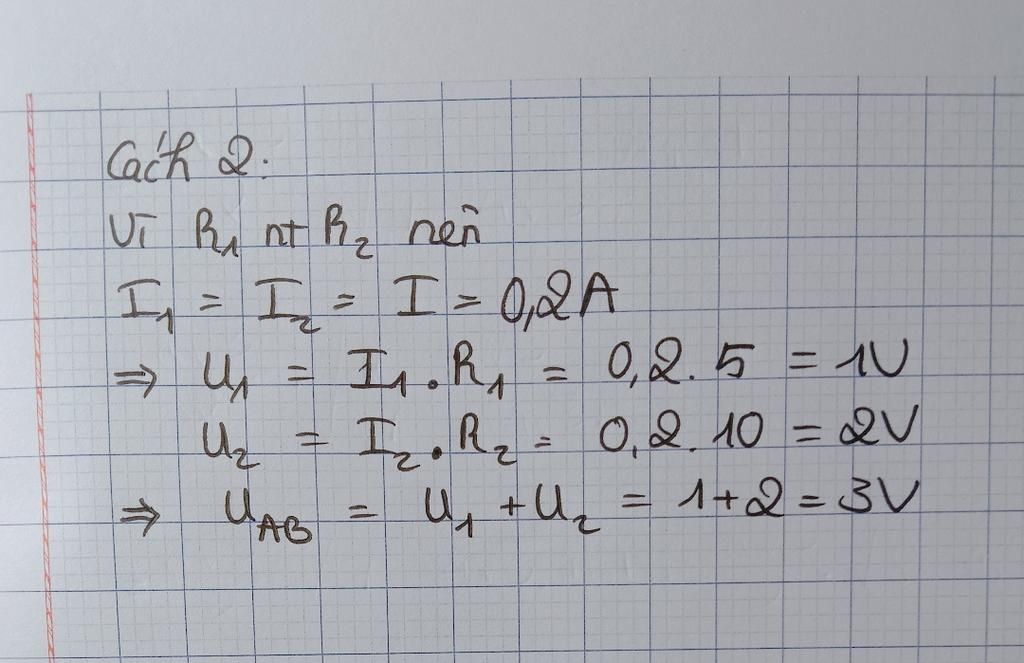 Cách 2:
Vì R₁ nt R₂ nên
I₁ = I₂ = I = 0,2A
⇒ U₁ = I₁.R₁ = 0,2.5 = 1V
U₂ = I₂.R₂ = 0,2.10 = 2V
⇒ U_AB = U₁+U₂ = 1+2 = 3V